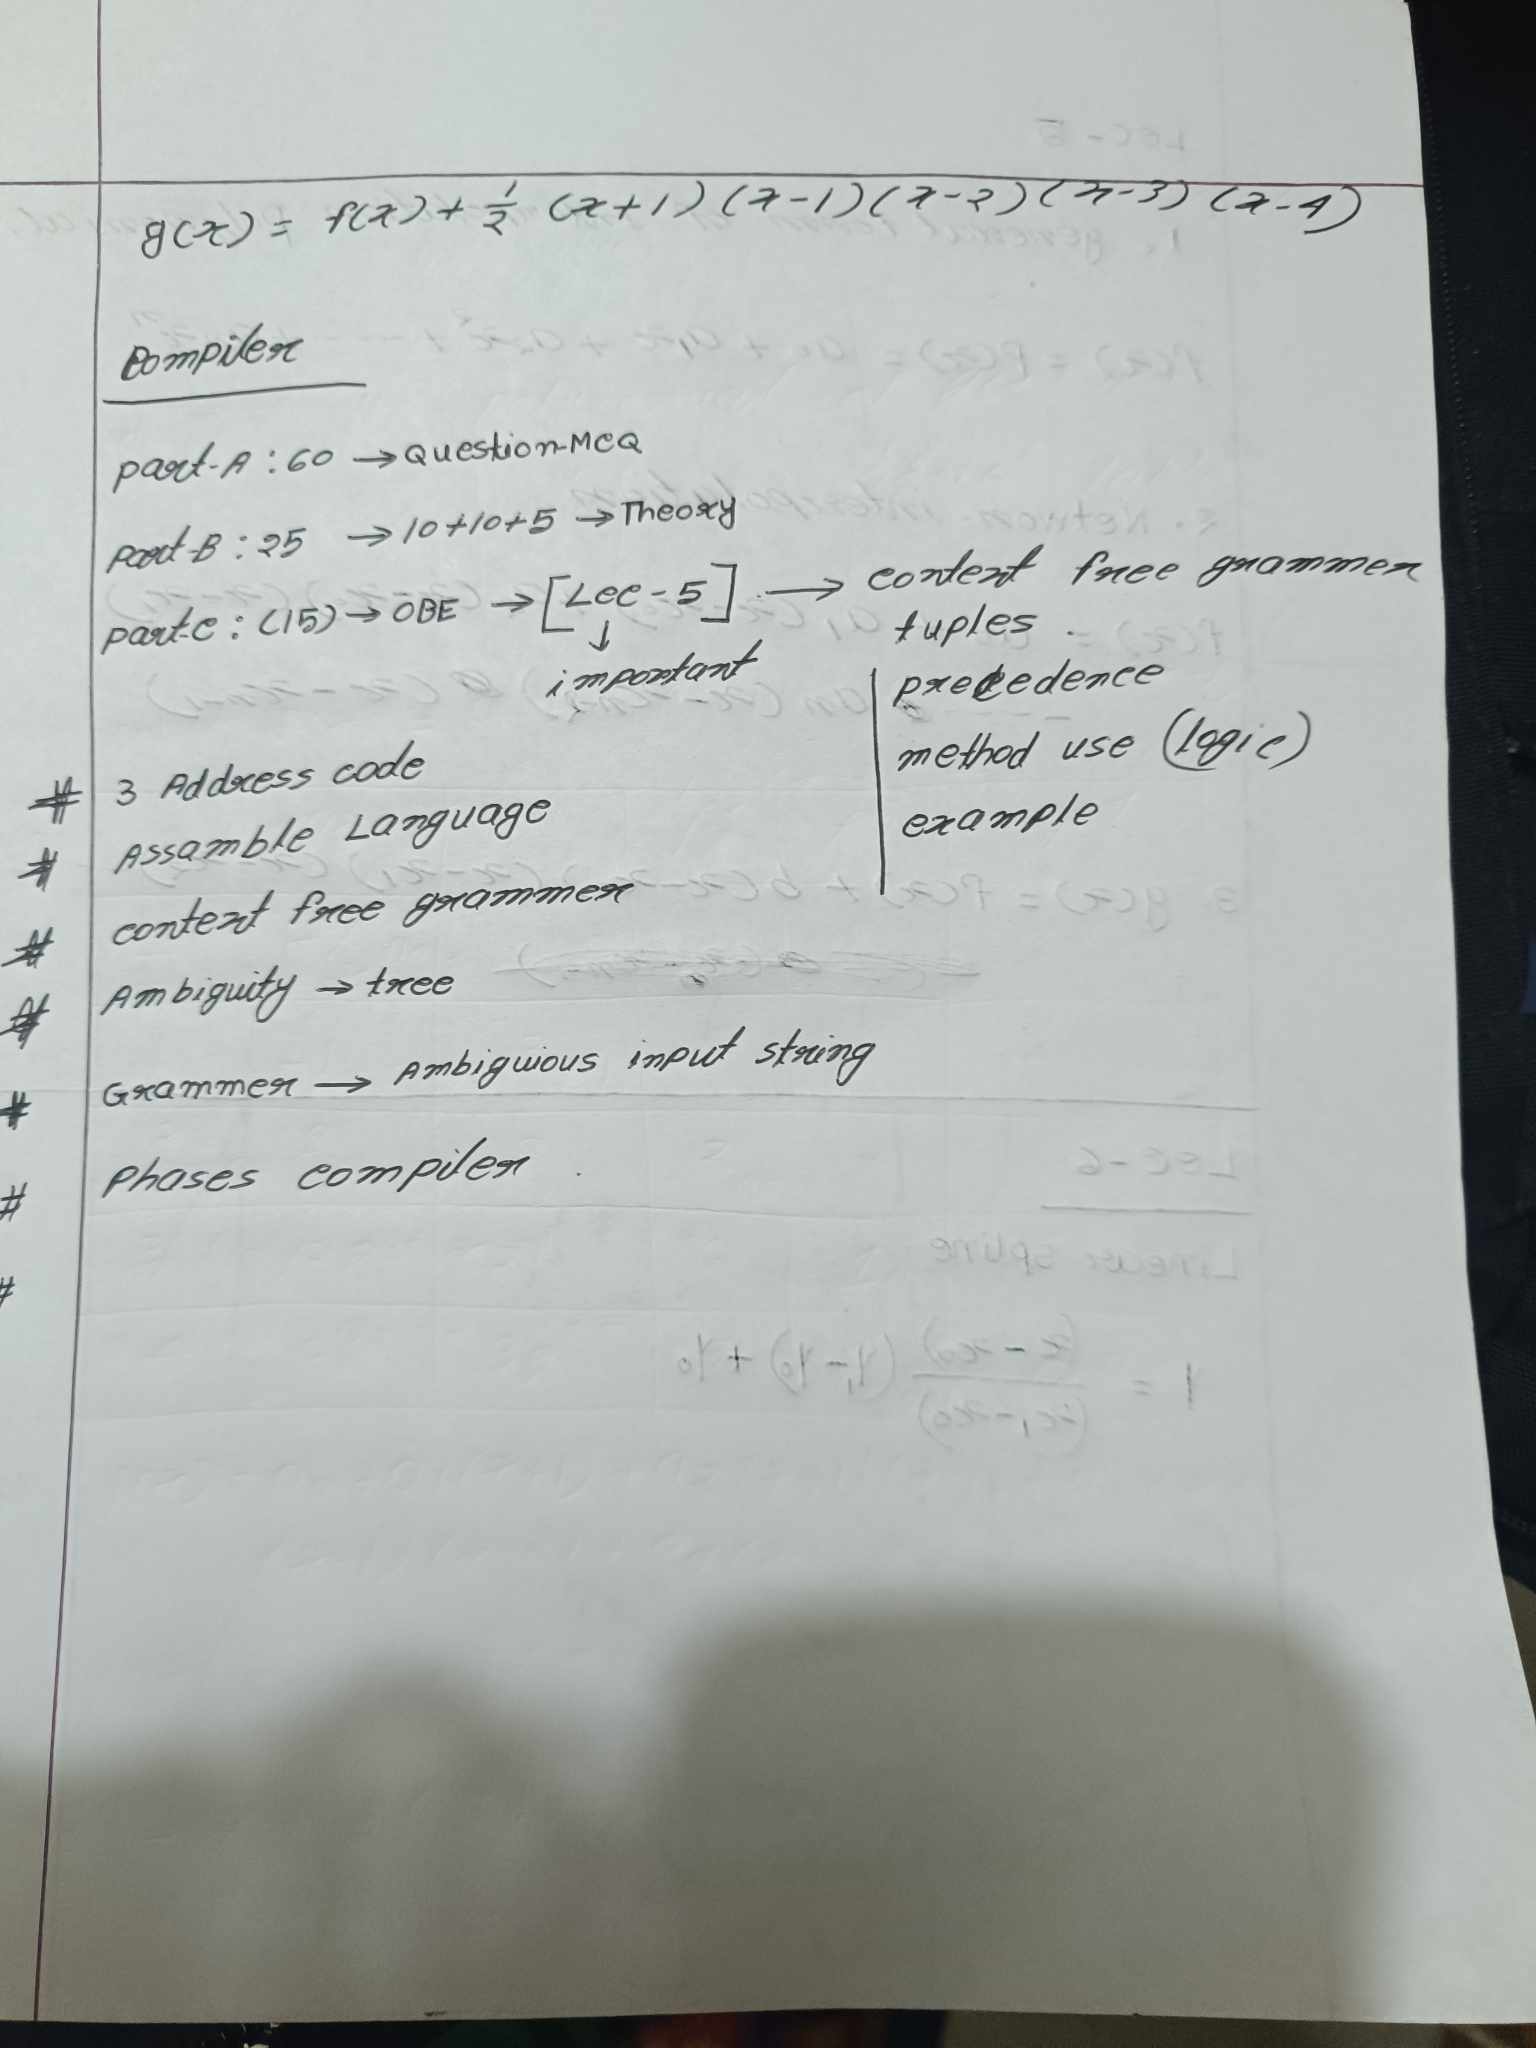 g(x) = f(x) + 1/2 (x+1) (x-1) (x-2) (x-3) (x-4)
Compiler
part-A : 60 → Question-MCQ
part-B : 25 → 10+10+5 → Theory
part-C : (15) → OBE → [Lec-5] → context free grammer
↓
important
tuples
precedence
method use (logic)
example
# 3 Address code
# Assamble Language
# context free grammer
# Ambiguity → tree
# Grammer → Ambiguious input string
# phases compiler
#